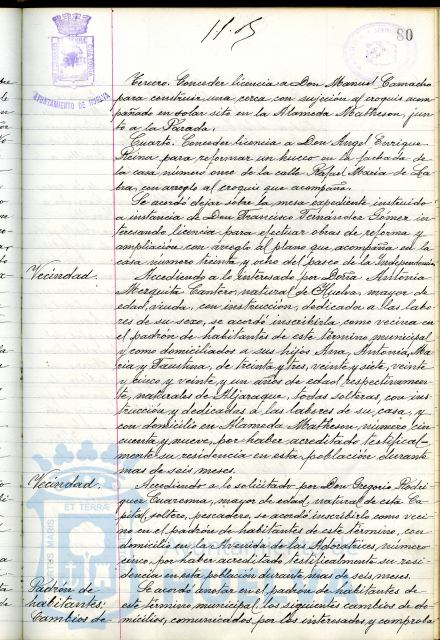 11.05
80
AYUNTAMIENTO DE HUELVA
Tercero. Conceder licencia a Don Manuel Camacho
para construir una cerca con sujeción al croquis acom-
pañado en solar sito en la Alameda Matheson, jun-
to a la Parada.
Cuarto. Conceder licencia a Don Angel Enrique
Reina para reformar un hueco en la fachada de
la casa número once de la calle Rafael María de La-
bra, con arreglo al croquis que acompaña.
Se acordó dejar sobre la mesa expediente instruido
a instancia de Don Francisco Fernández Gómez in-
teresando licencia para efectuar obras de reforma y
ampliación con arreglo al plano que acompaña en la
casa número treinta y ocho del paseo de la Independencia.
Vecindad. Accediendo a lo interesado por Doña Antonia
Mezquita Cantero, natural de Huelva, mayor de
edad, viuda, con instrucción, dedicada a las labo-
res de su sexo, se acordó inscribirla como vecina en
el padrón de habitantes de este término municipal
y como domiciliados a sus hijos Ana, Antonia, Ma-
ria y Faustina, de treinta y tres, veinte y siete, veinte
y cinco y veinte y un años de edad respectivamen-
te, naturales de Aljaraque, todas solteras, con ins-
trucción y dedicadas a las labores de su casa, y
con domicilio en Alameda Matheson, número cin-
cuenta y nueve, por haber acreditado testifical-
mente su residencia en esta población durante
mas de seis meses.
Vecindad. Accediendo a lo solicitado por Don Gregorio Rodri-
guez Cuaresma, mayor de edad, natural de esta Ca-
pital, soltero, pescadero, se acordó inscribirle como veci-
no en el padrón de habitantes de este término, con
domicilio en la Avenida de las Adoratrices, número
cinco, por haber acreditado testifealmente su resi-
dencia en esta población durante mas de seis meses.
Padrón de Se acordó anotar en el padrón de habitantes de
habitantes; este término municipal los siguientes cambios de do-
Cambios de micilios, comunicados por los interesados y comproba-